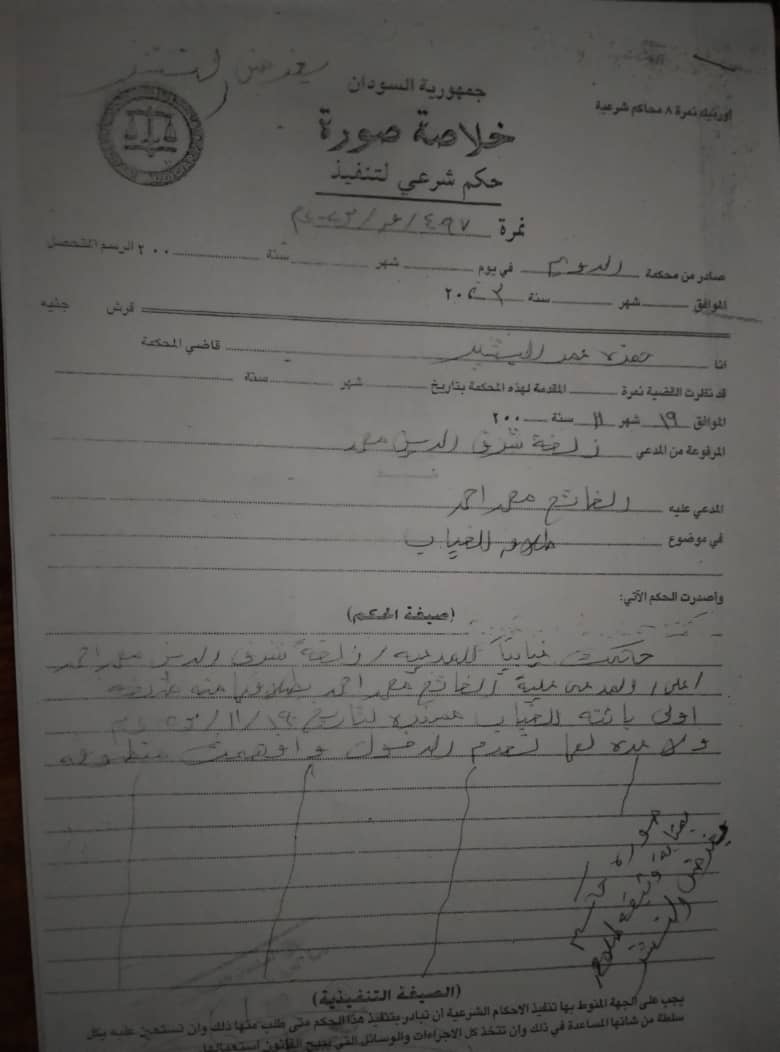 اورنيك نمرة ٨ محاكم شرعية
جمهورية السودان
خلاصة صورة
حكم شرعي لتنفيذ
نمرة ٤٩٧
صادر من محكمة الدويم في يوم شهر سنة ٢٠٠ الرسم المتحصل
الموافق شهر سنة ٢٠٢٣
قرش جنيه
انا حمزه عمر البشير قاضي المحكمة
قد نظرت القضية نمرة المقدمة لهذه المحكمة بتاريخ شهر سنة
الموافق ١٩ شهر ١١ سنة ٢٠٠
المرفوعة من المدعي شرف الدين محمد
المدعي عليه الفاتح محمد احمد
في موضوع طلاق للغياب
واصدرت الحكم الآتي:
(صيغة الحكم)
حكمت غيابياً للمدعيه شرف الدين محمد احمد
على المدعى عليه الفاتح محمد احمد بطلاقها منه طلقه
اولى بائنه للغياب
ولا عده لها لعدم الدخول وافهمت
صورة
(الصيغة التنفيذية)
يجب على الجهة المنوط بها تنفيذ الاحكام الشرعية ان تبادر بتنفيذ هذا الحكم متى طلب منها ذلك وان تستعين عليه بكل
سلطة من شانها المساعدة في ذلك وان تتخذ كل الاجراءات والوسائل التي يبيح القانون استعمالها